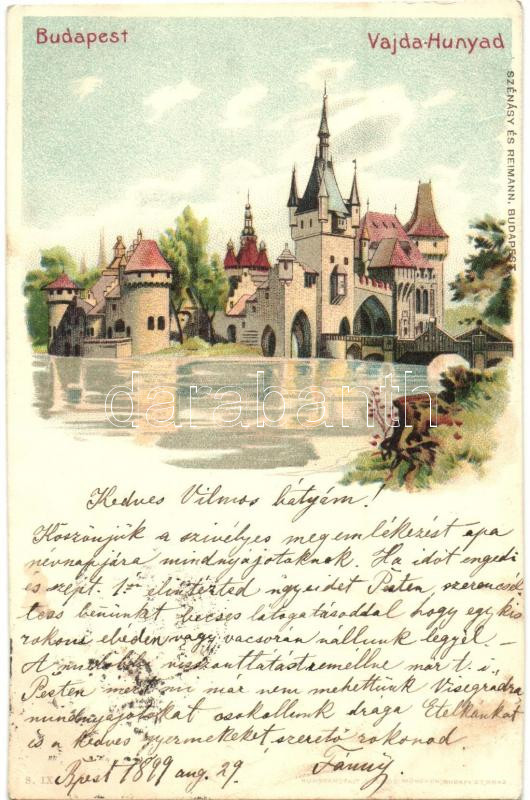 Budapest
Vajda-Hunyad
SZÉNÁSY ÉS REIMANN, BUDAPEST.
darabanth
Kedves Vilmos bátyám!
Köszönjük a szivélyes megemlékezést apa
névnapjára mindnyájotoknak. Ha idöt engedi
és szept. 1én elintézted ügyeidet Pesten, szerencsél
tess benünket becses látogatásoddal hogy egy kis
rokoni ebéden vagy vacsorán nállunk legyél. –
A viszontlátást remellne már t. i.
Pesten mert mi már nem mehettünk Visegradra
mindnyájotokat csokollunk draga Etelkánkat
és a kedves gyermekeket szerető rokonod
Bpest 1899 aug. 29. Fánny
S. IX